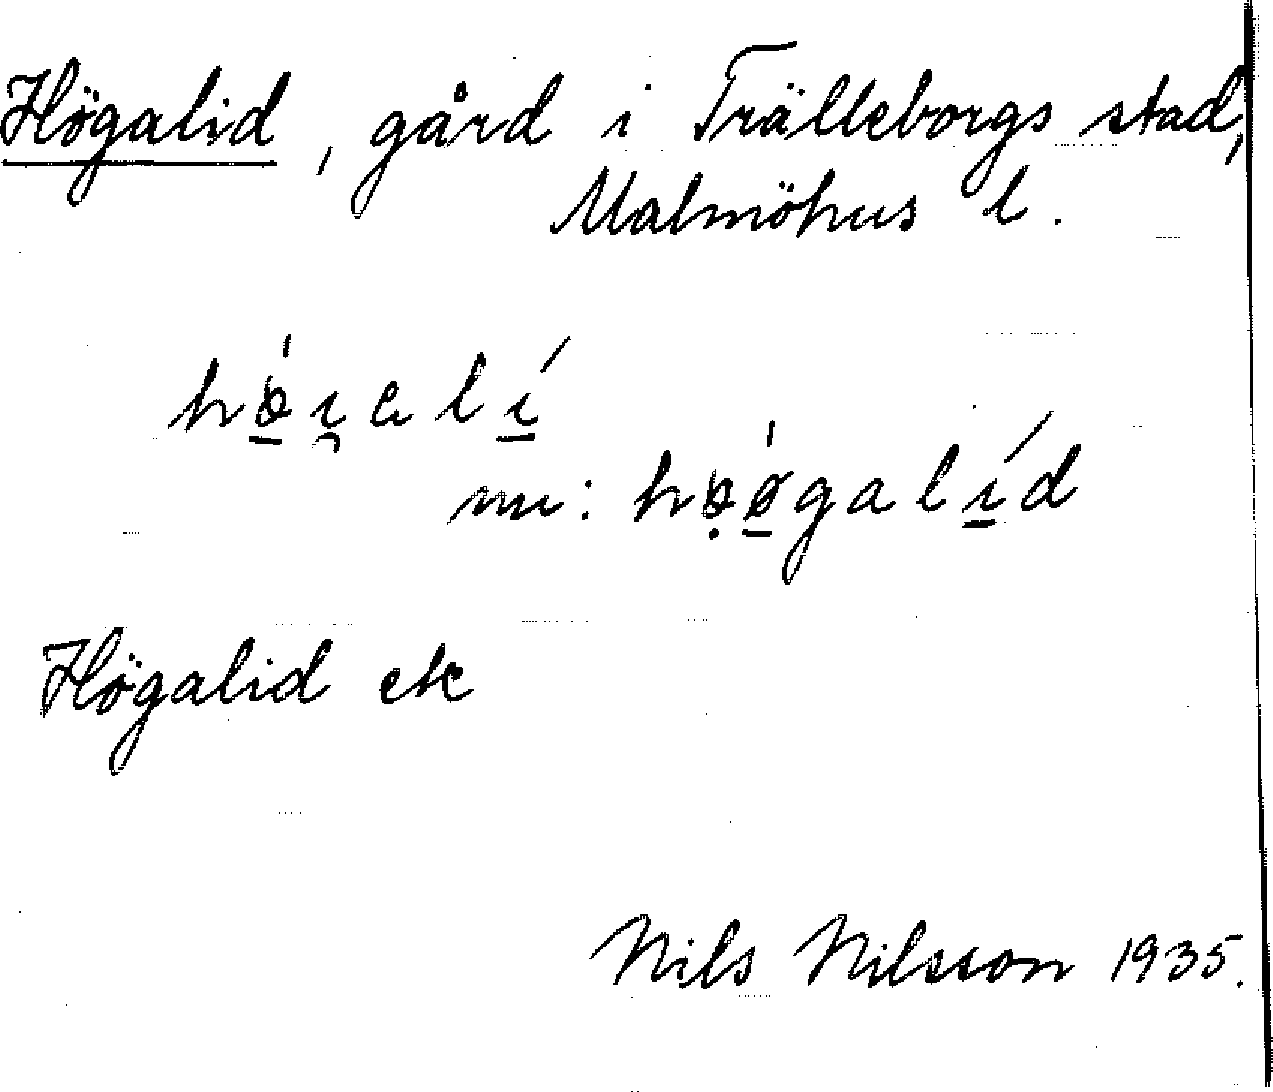 Högalid, gård i Trälleborgs stad,
Malmöhus l.
nu:
Högalid ek
Nils Nilsson 1935.